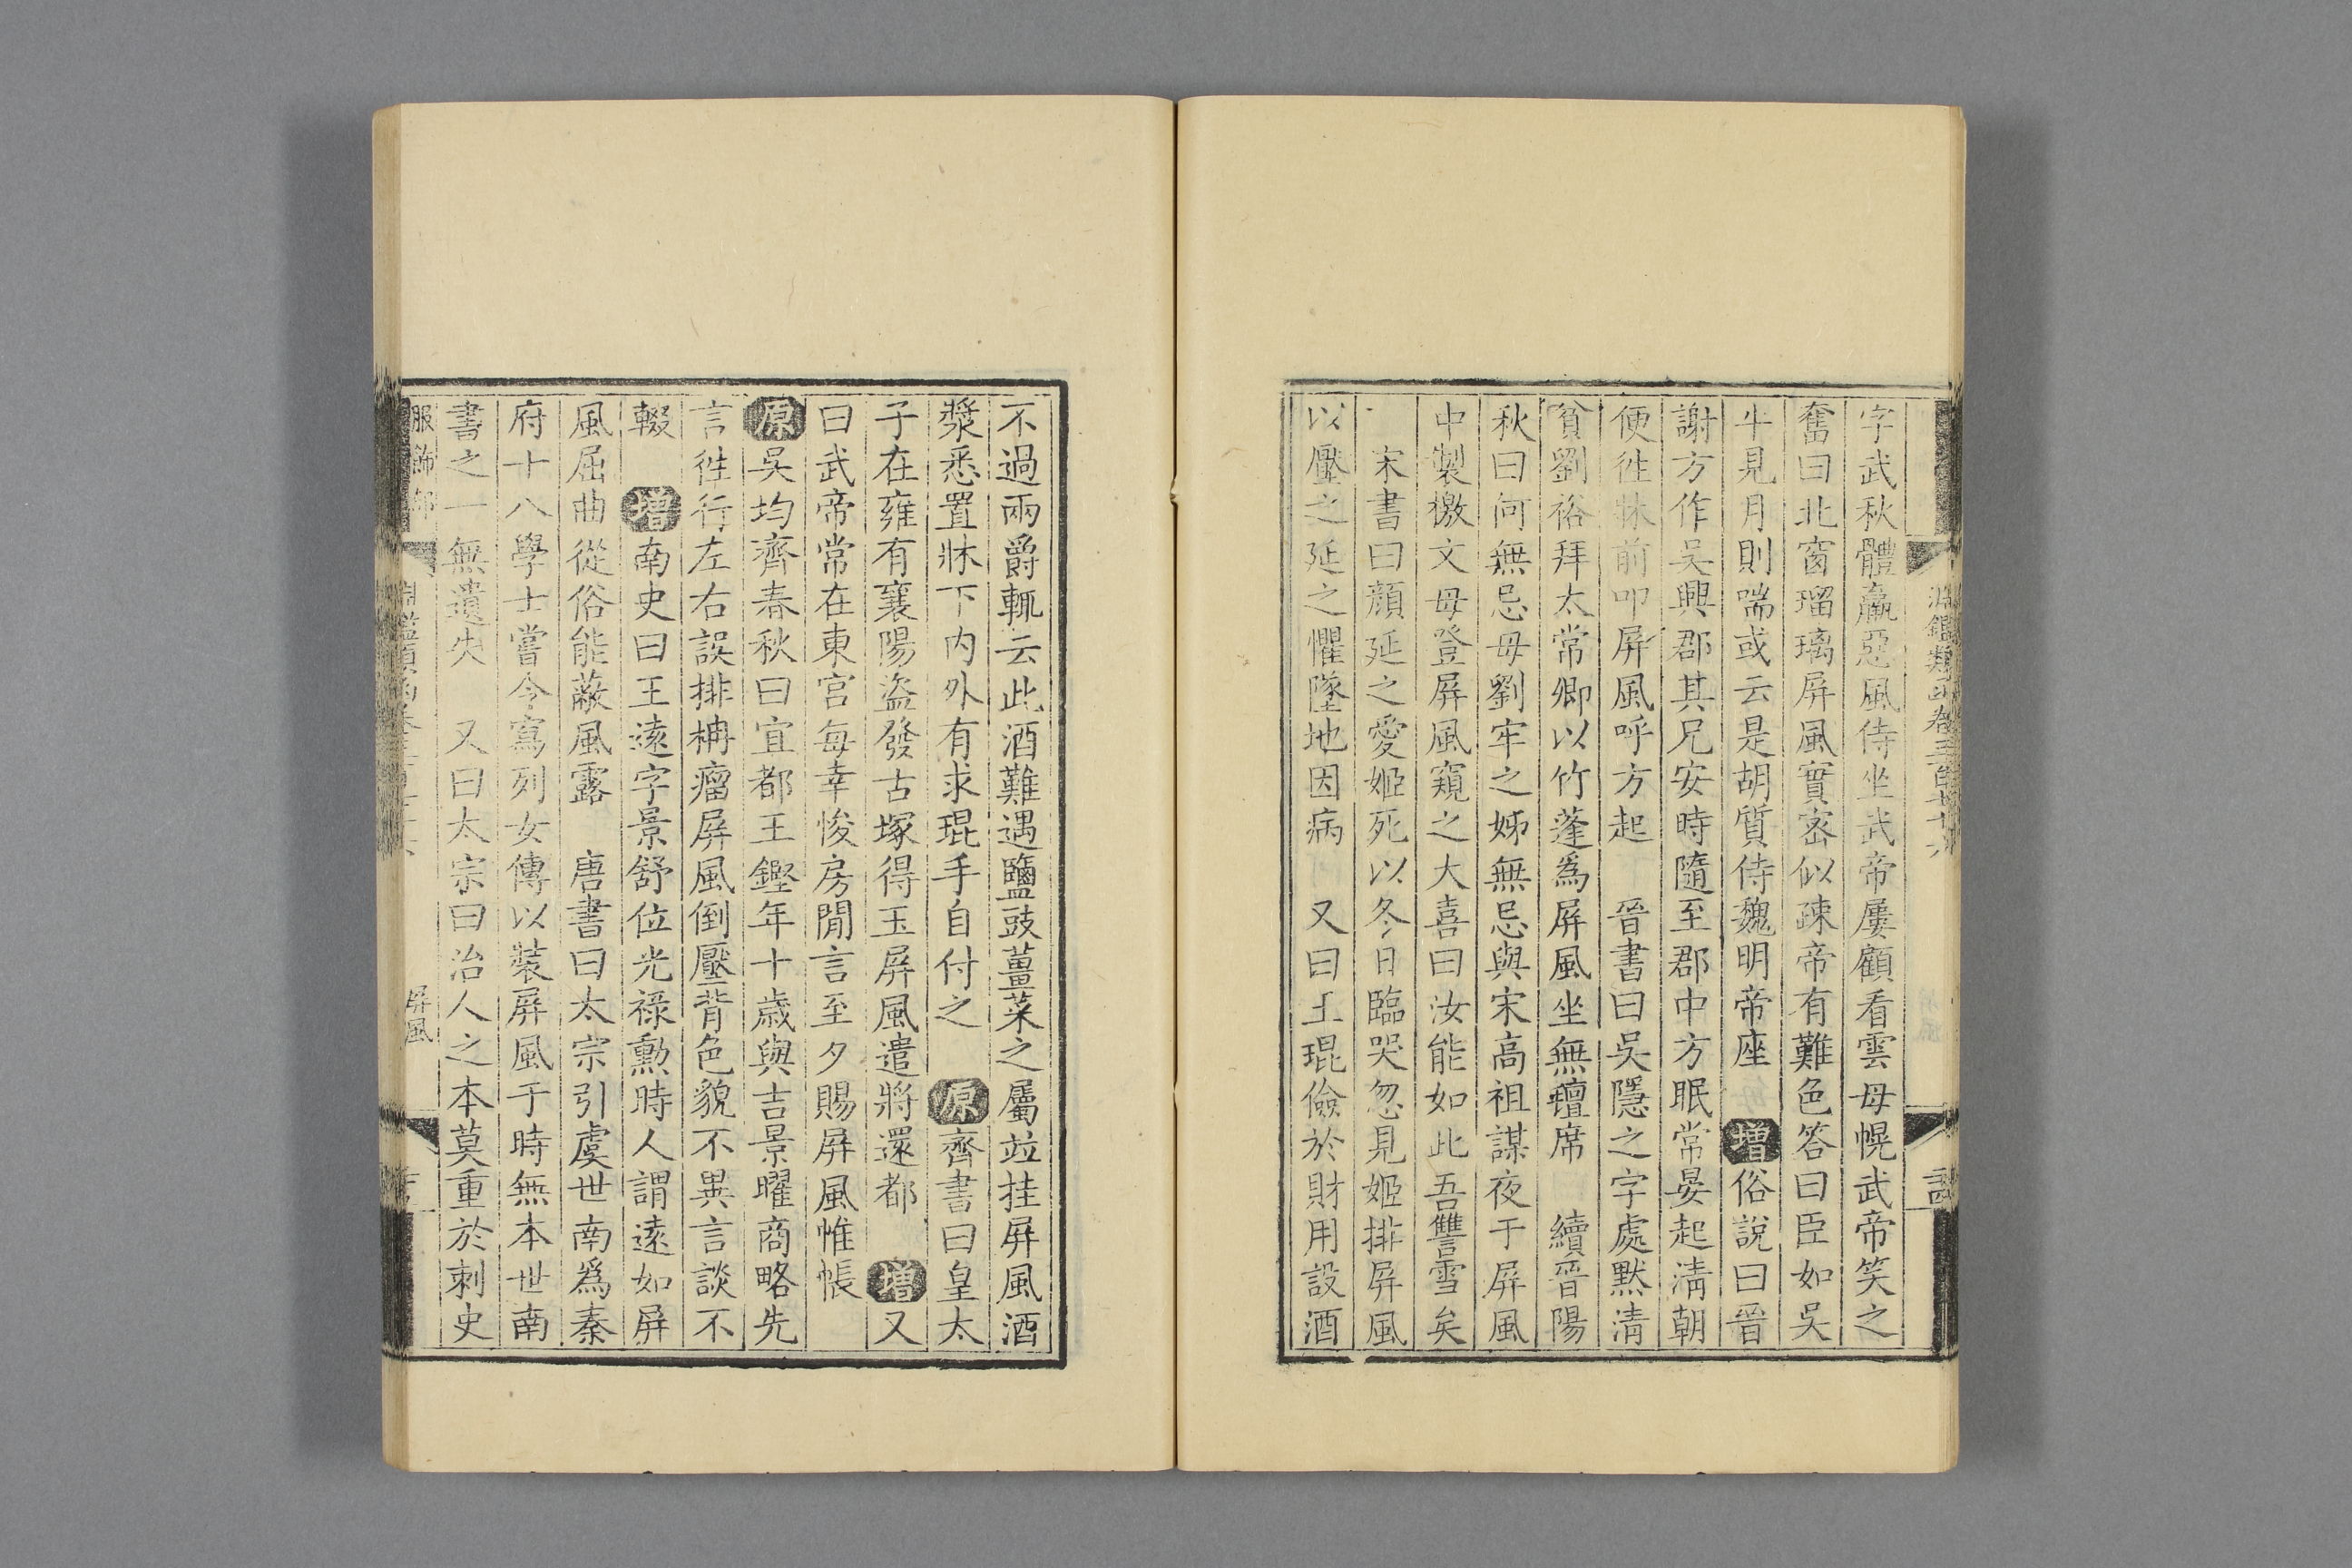 字武秋體羸惡風侍坐武帝屢顧看雲母幌武帝笑之
奮曰北窗瑠璃屏風實宻似疎帝有難色答曰臣如吳
牛見月則喘或云是胡質侍魏明帝座 增俗說曰晉
謝方作吳興郡其兄安時隨至郡中方眠常晏起淸朝
便徃牀前叩屏風呼方起 晉書曰吳隱之字處默淸
貧劉裕拜太常卿以竹蓬爲屏風坐無氊席 續晉陽
秋曰何無忌母劉牢之姊無忌與宋高祖謀夜于屏風
中製檄文母登屏風窺之大喜曰汝能如此吾讐雪矣
宋書曰顔延之愛姬死以冬日臨哭忽見姬排屏風
以壓之延之懼墜地因病 又曰王琨儉於財用設酒
不過兩爵輒云此酒難遇鹽豉薑菜之屬竝挂屏風酒
漿悉置牀下内外有求琨手自付之 原齊書曰皇太
子在雍有襄陽盜發古塚得玉屏風遣將還都 增又
曰武帝常在東宮每幸悛房閒言至夕賜屏風帷帳
原吳均齊春秋曰宜都王鏗年十歳與吉景曜商略先
言徃行左右誤排柟瘤屏風倒壓背色貌不異言談不
輟 增南史曰王遠字景舒位光祿勲時人謂遠如屏
風屈曲從俗能蔽風露 唐書曰太宗引虞世南爲秦
府十八學士嘗令寫列女傳以裝屏風于時無本世南
書之一無遺失 又曰太宗曰治人之本莫重於刺史
服飾部
屏風